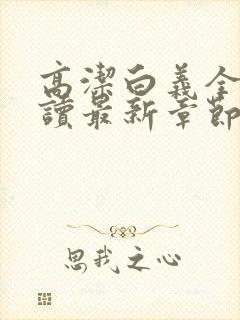 高潔白義全
讀最新章節
思我之心